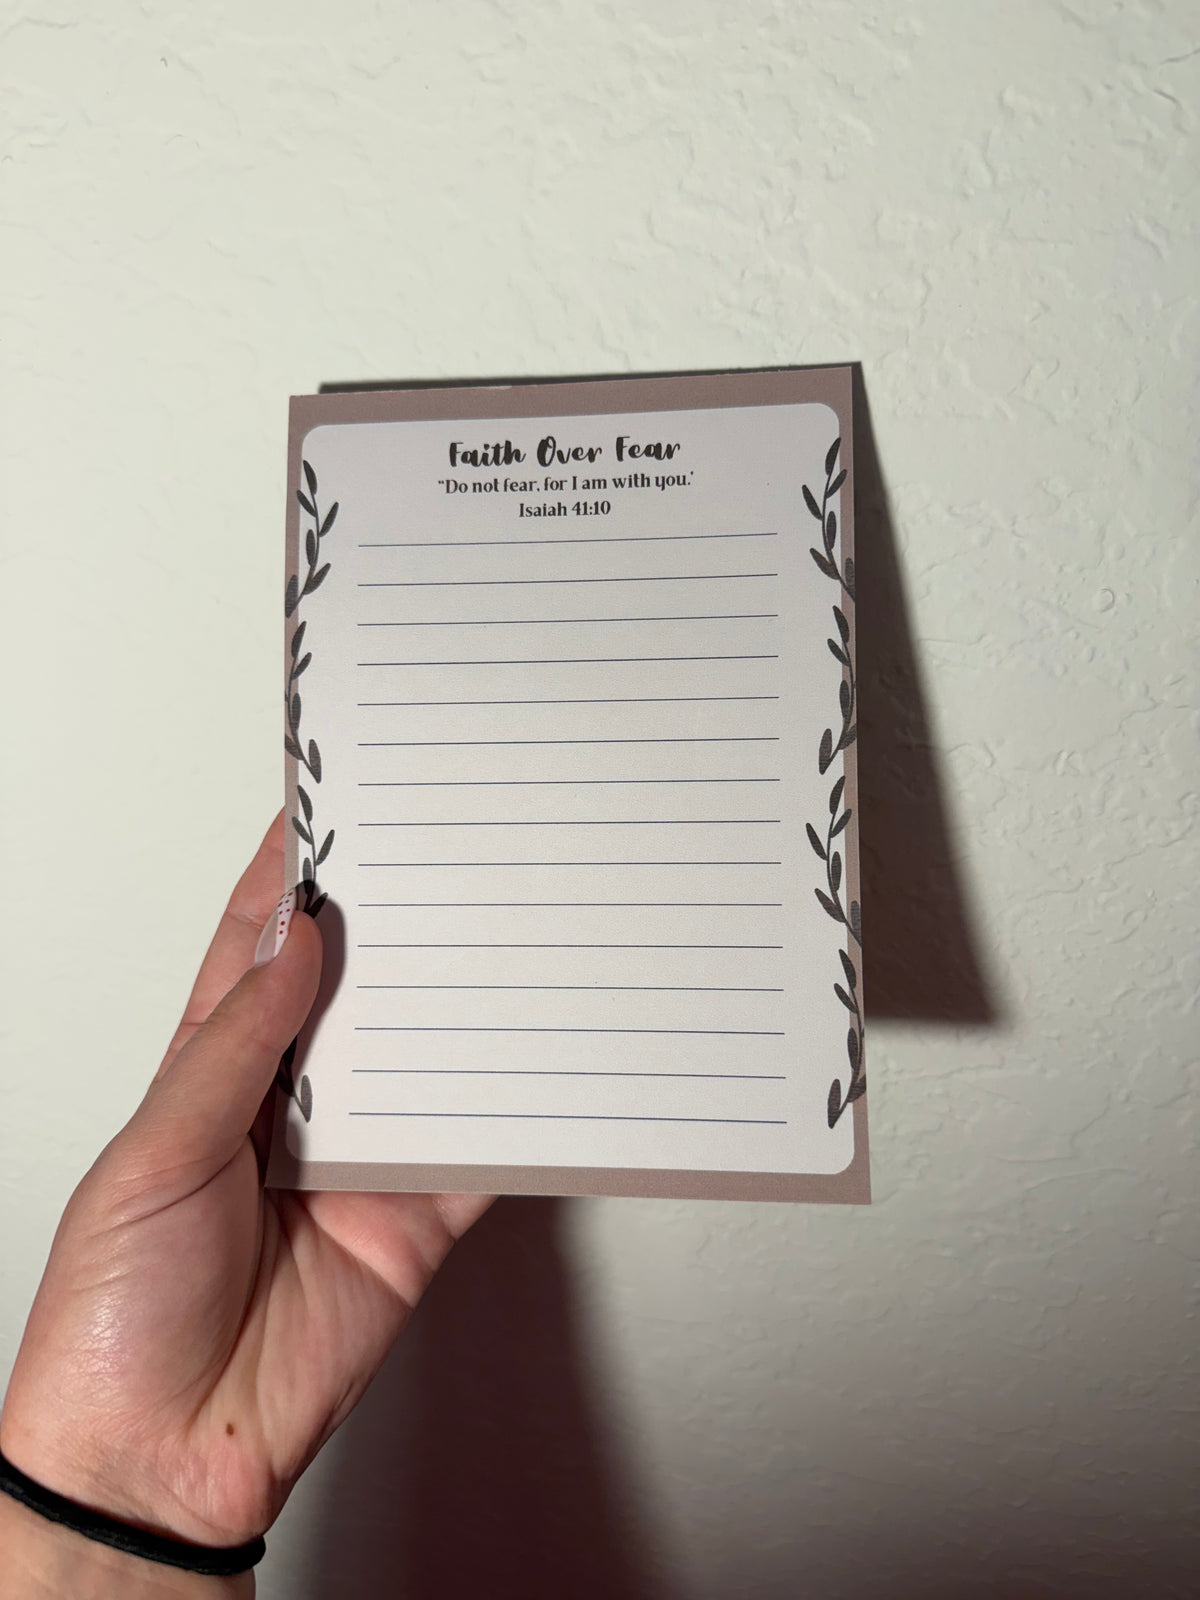 Faith Over Fear
"Do not fear, for I am with you.'
Isaiah 41:10